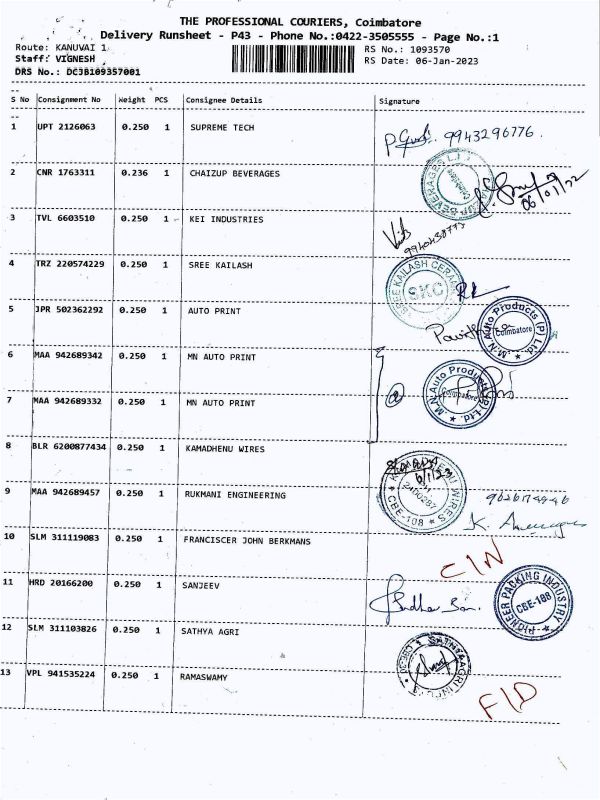 THE PROFESSIONAL COURIERS, Coimbatore
Delivery Runsheet - P43 - Phone No.:0422-3505555 - Page No.:1
Route: KANUVAI 1
RS No.: 1093570
Staff: VIGNESH
RS Date: 06-Jan-2023
DRS No.: DCJB109357001
S No Consignment No Weight PCS Consignee Details Signature
1 UPT 2126063 0.250 1 SUPREME TECH
9943296776
2 CNR 1763311 0.236 1 CHAIZUP BEVERAGES
Coimbatore
3 TVL 6603510 0.250 1 KEI INDUSTRIES
4 TRZ 220574229 0.250 1 SREE KAILASH
SREE KAILASH CERA
SKC
5 JPR 502362292 0.250 1 AUTO PRINT
M.N. Auto Products (P) Ltd.
Coimbatore
6 MAA 942689342 0.250 1 MN AUTO PRINT
7 MAA 942689332 0.250 1 MN AUTO PRINT
2
M.N. Auto Products (P) Ltd.
Coimbatore
8 BLR 6200877434 0.250 1 KAMADHENU WIRES
6/1/23
WIRES
CBE-108
9 MAA 942689457 0.250 1 RUKMANI ENGINEERING
10 SLM 311119083 0.250 1 FRANCISCER JOHN BERKMANS
C/N
11 HRD 20166200 0.250 1 SANJEEV
PIONEER PACKING INDUSTRY
CBE-188
12 SLM 311103826 0.250 1 SATHYA AGRI
13 VPL 941535224 0.250 1 RAMASWAMY
F/D